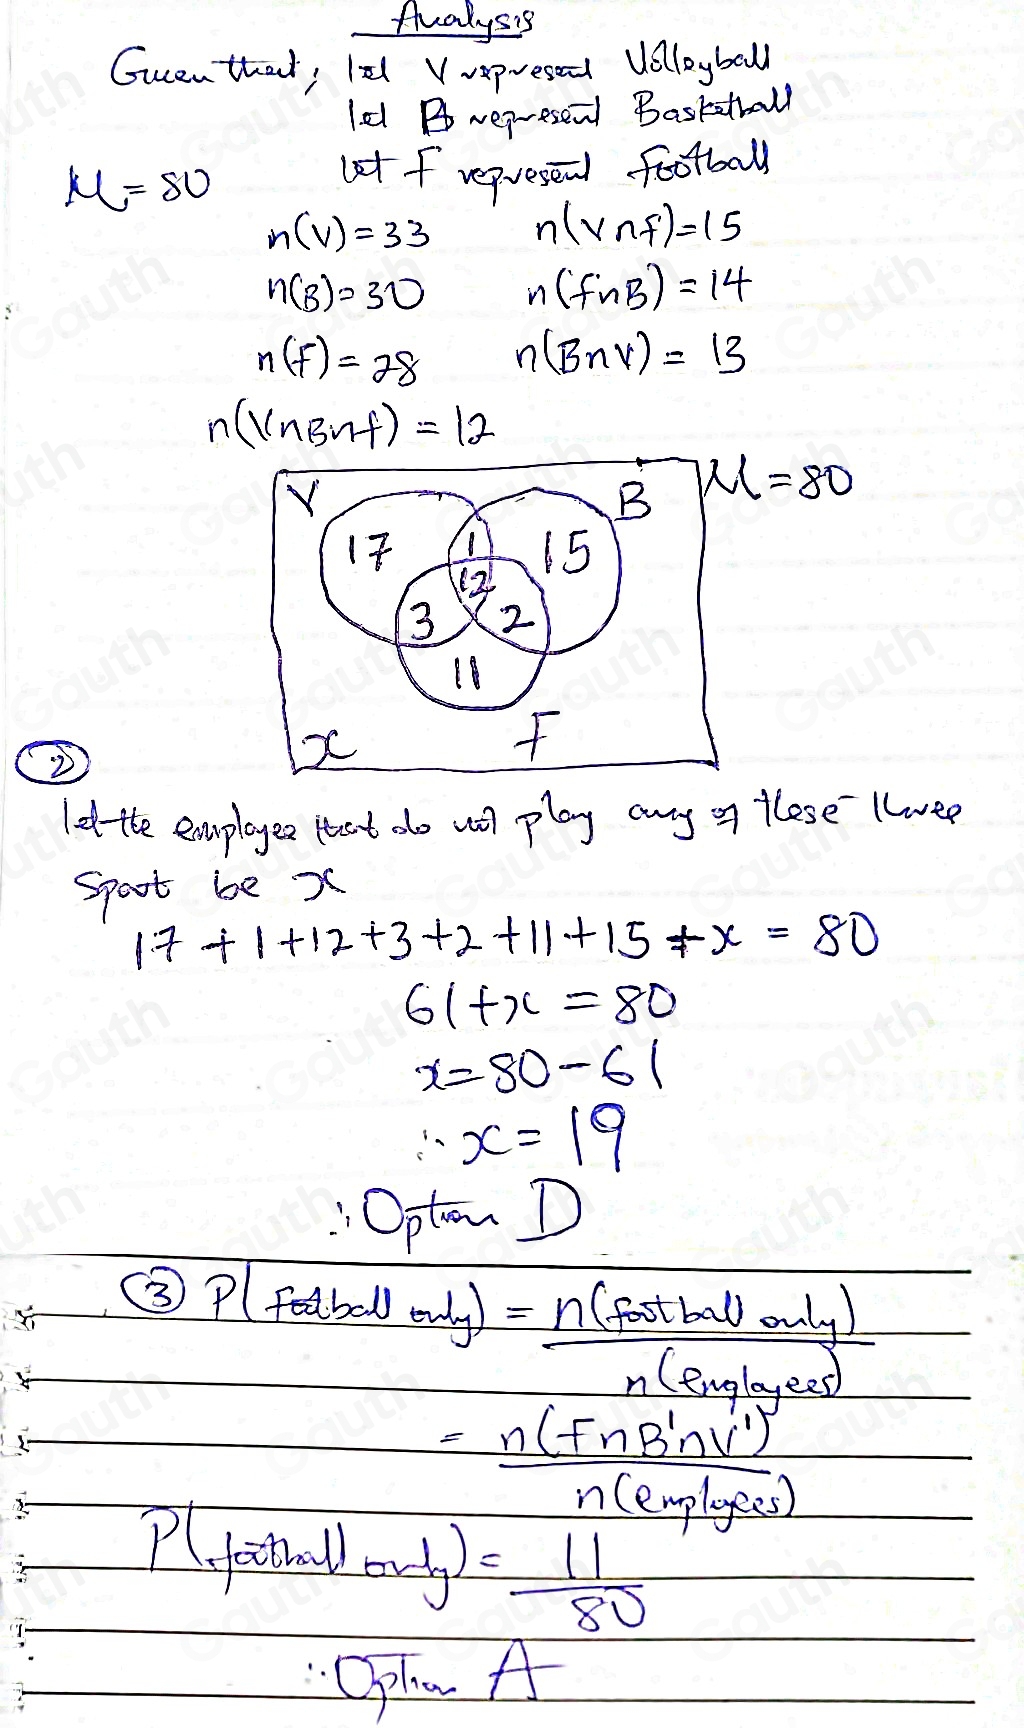 Analysis
Given that, let V represent Volleyball
let B represent Basketball
let F represent football
μ = 80
n(V) = 33 n(V∩F) = 15
n(B) = 30 n(F∩B) = 14
n(F) = 28 n(B∩V) = 13
n(V∩B∩F) = 12
V B μ = 80
17 1 15
12
3 2
11
x F
2
let the employee that do not play any of these three
sport be x
17 + 1 + 12 + 3 + 2 + 11 + 15 + x = 80
61 + x = 80
x = 80 - 61
∴ x = 19
∴ Option D
3 P(football only) = n(football only)
n(employees)
= n(F∩B'∩V')
n(employees)
P(football only) = 11
80
∴ Option A
Gauth